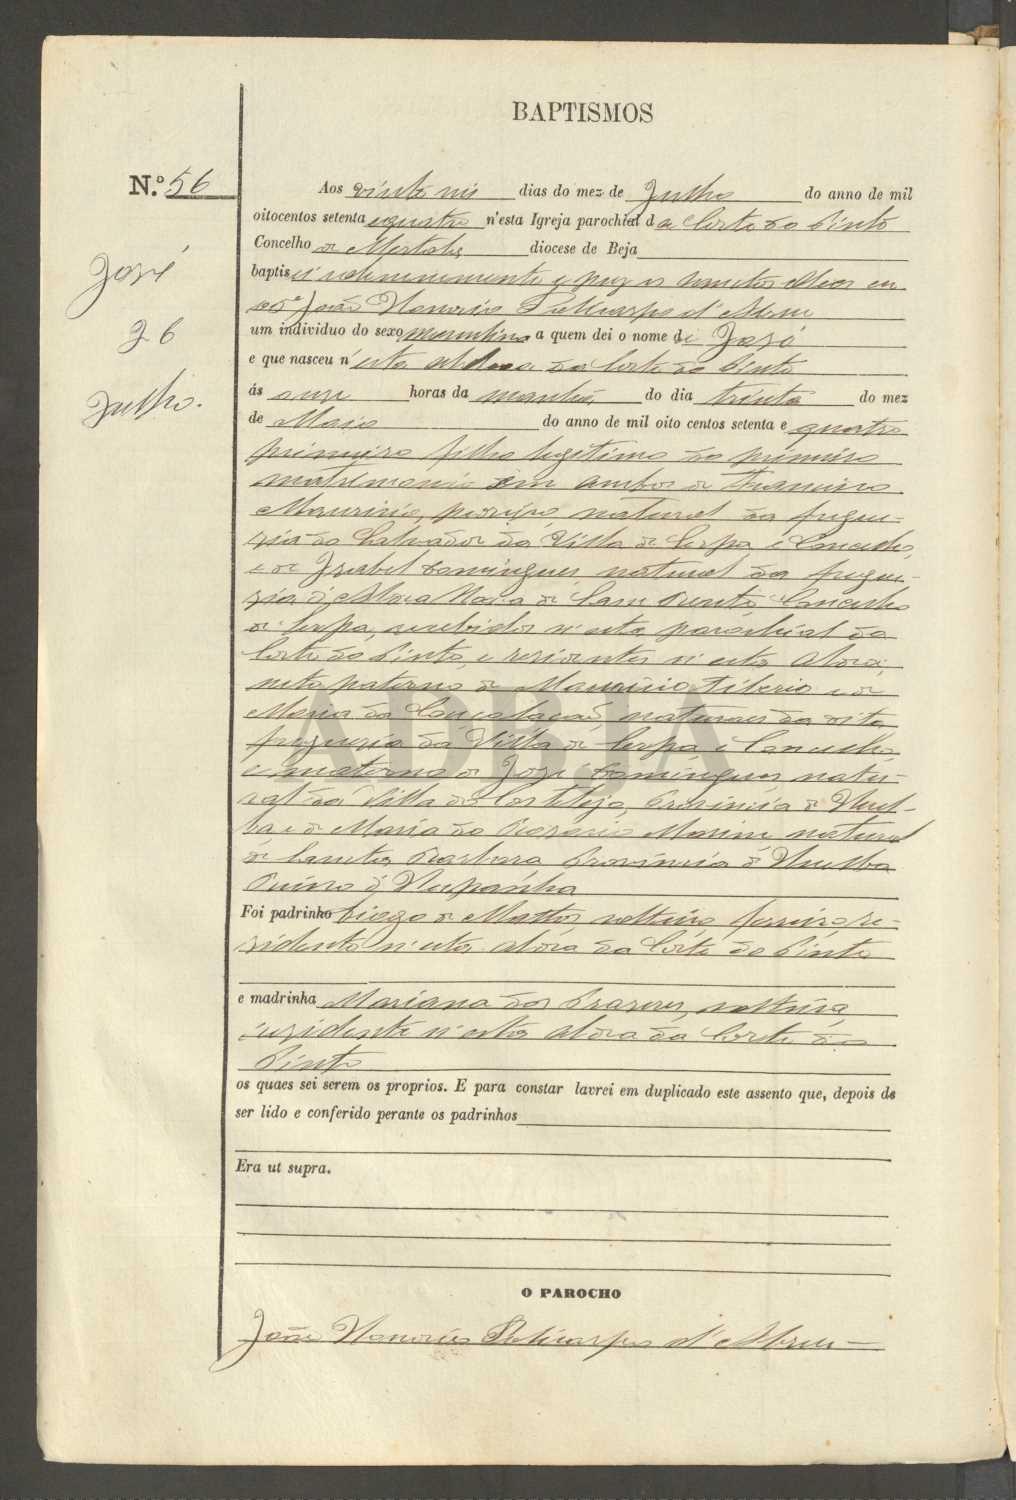 BAPTISMOS
N.º 56
José
26
Julho.
Aos vinte seis dias do mez de Julho do anno de mil
oitocentos setenta e quatro n'esta Igreja parochial da Corte do Pinto
Concelho de Mertola diocese de Beja
baptisei solemnemente e puz os Santos Oleos eu
João Honorio Policarpo d'Abreu
um individuo do sexo masculino a quem dei o nome de José
e que nasceu n'esta aldea da Corte do Pinto
ás onze horas da manhã do dia trinta do mez
de Maio do anno de mil oito centos setenta e quatro
primeiro filho legitimo do primeiro
matrimonio em ambos de Francisco
Mauricio, natural da fregue-
zia do Salvador da Villa de Serpa e Concelho,
e de Izabel Domingues, natural da fregue-
zia d'Aldea Nova de Sam Bento, Concelho
de Serpa, recebidos n'esta parochial da
Corte do Pinto, e rezidentes n'esta aldea;
neto paterno de Mauricio Tiberio e de
Maria da Conceição, naturaes da dita
freguezia da Villa de Serpa e Concelho
e materno de José Domingues, natu-
ral da Villa de Castilejo, Provincia d'Huel-
ba e de Maria do Rozario Marim natural
de Santa Barbara Provincia d'Huelba
Reino d'Hespanha
Foi padrinho Diogo de Mattos solteiro, ferreiro re-
zidente n'esta aldea da Corte do Pinto
e madrinha Mariana dos Prazeres, solteira,
rezidente n'esta aldea da Corte do
Pinto
os quaes sei serem os proprios. E para constar lavrei em duplicado este assento que, depois de
ser lido e conferido perante os padrinhos
Era ut supra.
O PAROCHO
João Honorio Policarpo d'Abreu
ADBJA